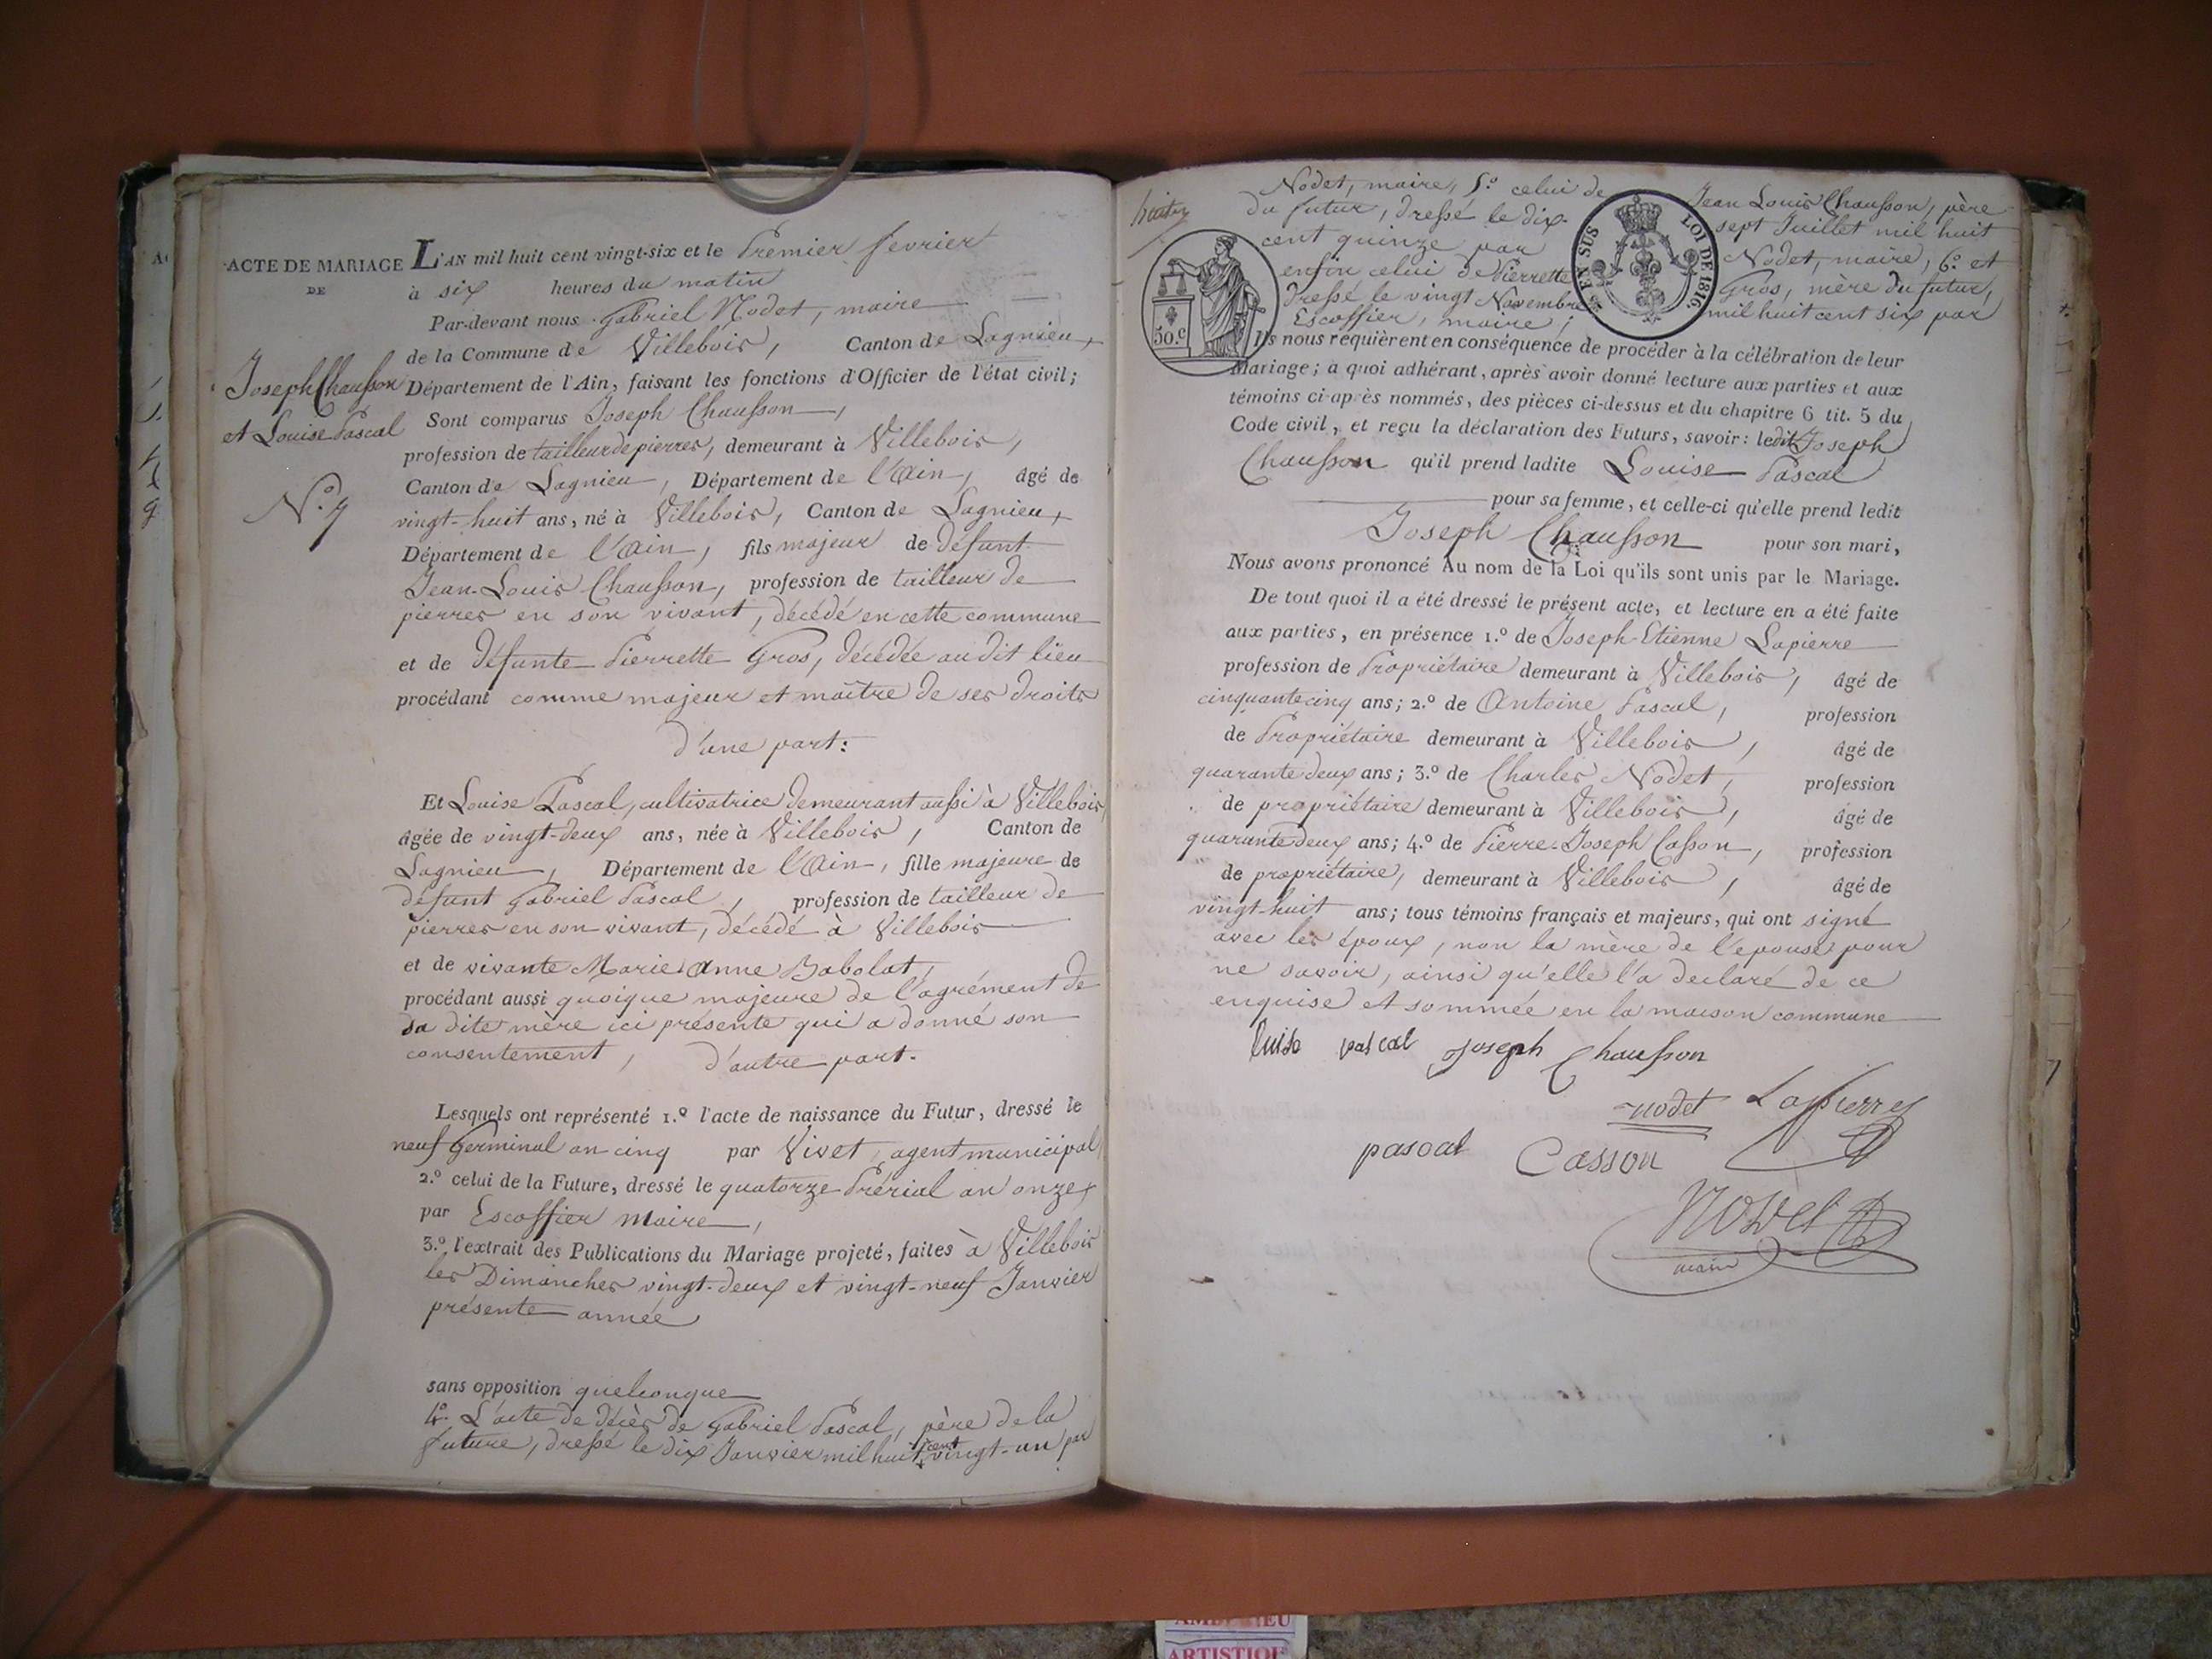 ACTE DE MARIAGE
DE
Joseph Chausson
et Louise Pascal
N.º 7
L'AN mil huit cent vingt-six et le Premier fevrier
à six heures du matin
Par-devant nous Gabriel Nodet, maire
de la Commune de Villebois, Canton de Lagnieu,
Département de l'Ain, faisant les fonctions d'Officier de l'état civil;
Sont comparus Joseph Chausson,
profession de tailleur de pierres, demeurant à Villebois,
Canton de Lagnieu, Département de l'Ain, âgé de
vingt-huit ans, né à Villebois, Canton de Lagnieu,
Département de l'Ain, fils majeur de défunt
Jean-Louis Chausson, profession de tailleur de
pierres en son vivant, décédé en cette commune
et de défunte Pierrette Gros, décédée au dit lieu
procédant comme majeur et maître de ses droits
d'une part:
Et Louise Pascal, cultivatrice demeurant aussi à Villebois,
âgée de vingt-deux ans, née à Villebois, Canton de
Lagnieu, Département de l'Ain, fille majeure de
défunt Gabriel Pascal, profession de tailleur de
pierres en son vivant, décédé à Villebois
et de vivante Marie Anne Babolat,
procédant aussi quoique majeure de l'agrément de
sa dite mère ici présente qui a donné son
consentement, d'autre part.
Lesquels ont représenté 1.º l'acte de naissance du Futur, dressé le
neuf Germinal an cinq par Vivet, agent municipal,
2.º celui de la Future, dressé le quatorze Prérial an onze,
par Escoffier maire,
3.º l'extrait des Publications du Mariage projeté, faites à Villebois
les Dimanches vingt-deux et vingt-neuf Janvier
présente année
sans opposition quelconque
4.º L'acte de décès de Gabriel Pascal, père de la
future, dressé le dix Janvier mil huit cent vingt-un par
Nodet, maire, 5.º celui de Jean Louis Chausson, père
du futur, dressé le dix-sept Juillet mil huit
cent quinze par Nodet, maire, 6.º et
enfin celui de Pierrette Gros, mère du futur,
dressé le vingt Novembre mil huit cent six par
Escoffier, maire;
50.c
EN SUS
LOI DE 1816.
Ils nous requièrent en conséquence de procéder à la célébration de leur
Mariage; a quoi adhérant, après avoir donné lecture aux parties et aux
témoins ci-après nommés, des pièces ci-dessus et du chapitre 6 tit. 5 du
Code civil, et reçu la déclaration des Futurs, savoir: ledit Joseph
Chausson qu'il prend ladite Louise Pascal
pour sa femme, et celle-ci qu'elle prend ledit
Joseph Chausson pour son mari,
Nous avons prononcé Au nom de la Loi qu'ils sont unis par le Mariage.
De tout quoi il a été dressé le présent acte, et lecture en a été faite
aux parties, en présence 1.º de Joseph-Etienne Lapierre
profession de Propriétaire demeurant à Villebois, âgé de
cinquante cinq ans; 2.º de Antoine Pascal, profession
de Propriétaire demeurant à Villebois, âgé de
quarante deux ans; 3.º de Charles Nodet, profession
de propriétaire demeurant à Villebois, âgé de
quarante deux ans; 4.º de Pierre-Joseph Casson, profession
de propriétaire, demeurant à Villebois, âgé de
vingt-huit ans; tous témoins français et majeurs, qui ont signé
avec les époux, non la mère de l'epouse pour
ne savoir, ainsi qu'elle l'a declaré de ce
enquise et sommée en la maison commune
luise pascal Joseph Chausson
nodet Lapierre
pascal Casson
Nodet
maire
ARTISTIQUE